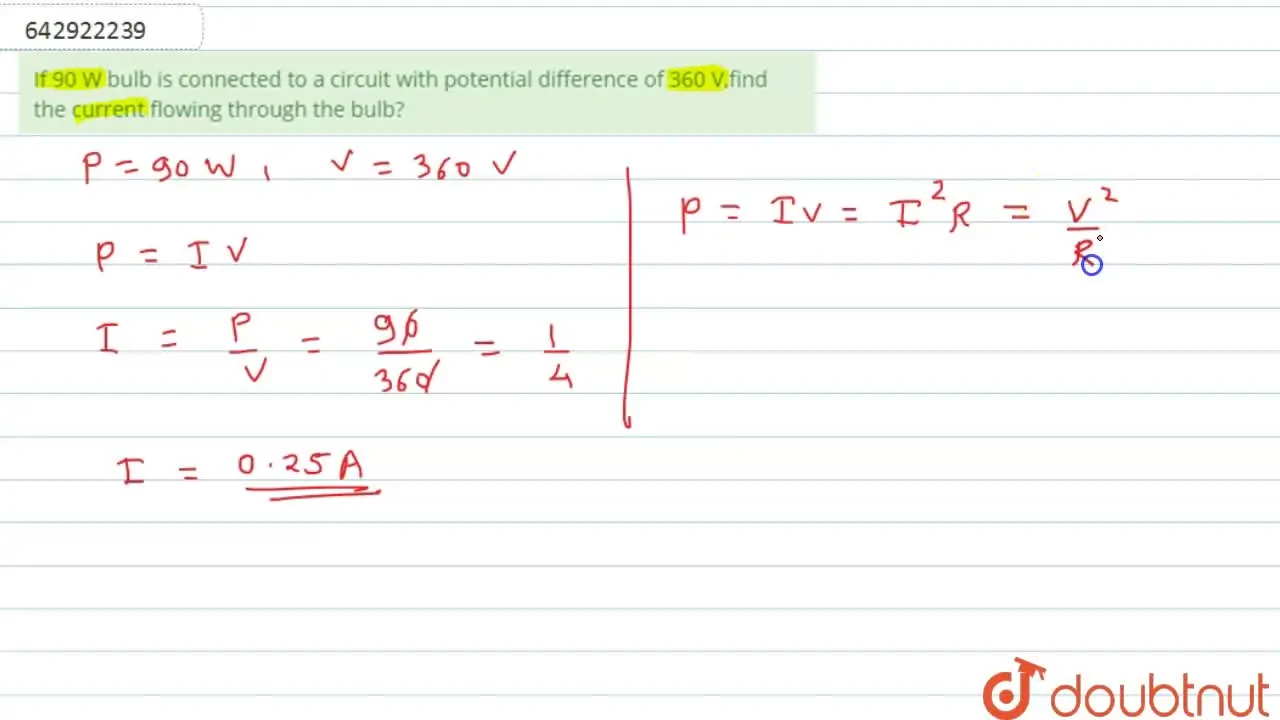 642922239
If 90 W bulb is connected to a circuit with potential difference of 360 V,find
the current flowing through the bulb?
P = 90 W , V = 360 V
P = I V
I = P/V = 90/360 = 1/4
I = 0.25 A
P = IV = I²R = V²/R
doubtnut